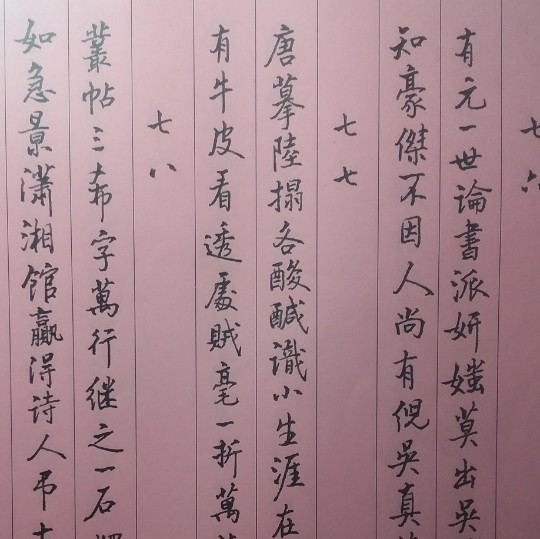 七六
有元一世論書派妍媸莫出吳
知豪傑不因人尚有倪吳真
七七
唐摹陸搨各酸醎識小生涯在
有牛皮看透處賊毫一折萬
七八
叢帖三希字萬行继之一石
如急景瀟湘馆贏得诗人吊